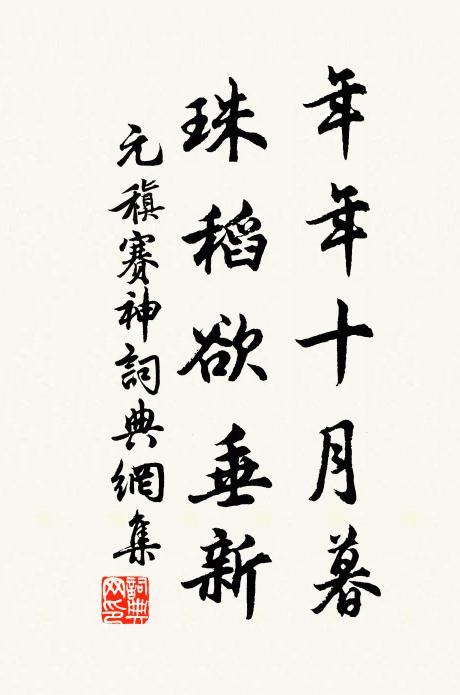 年年十月暮
珠稻欲垂新
元稹賽神詞典網集
詞典網印